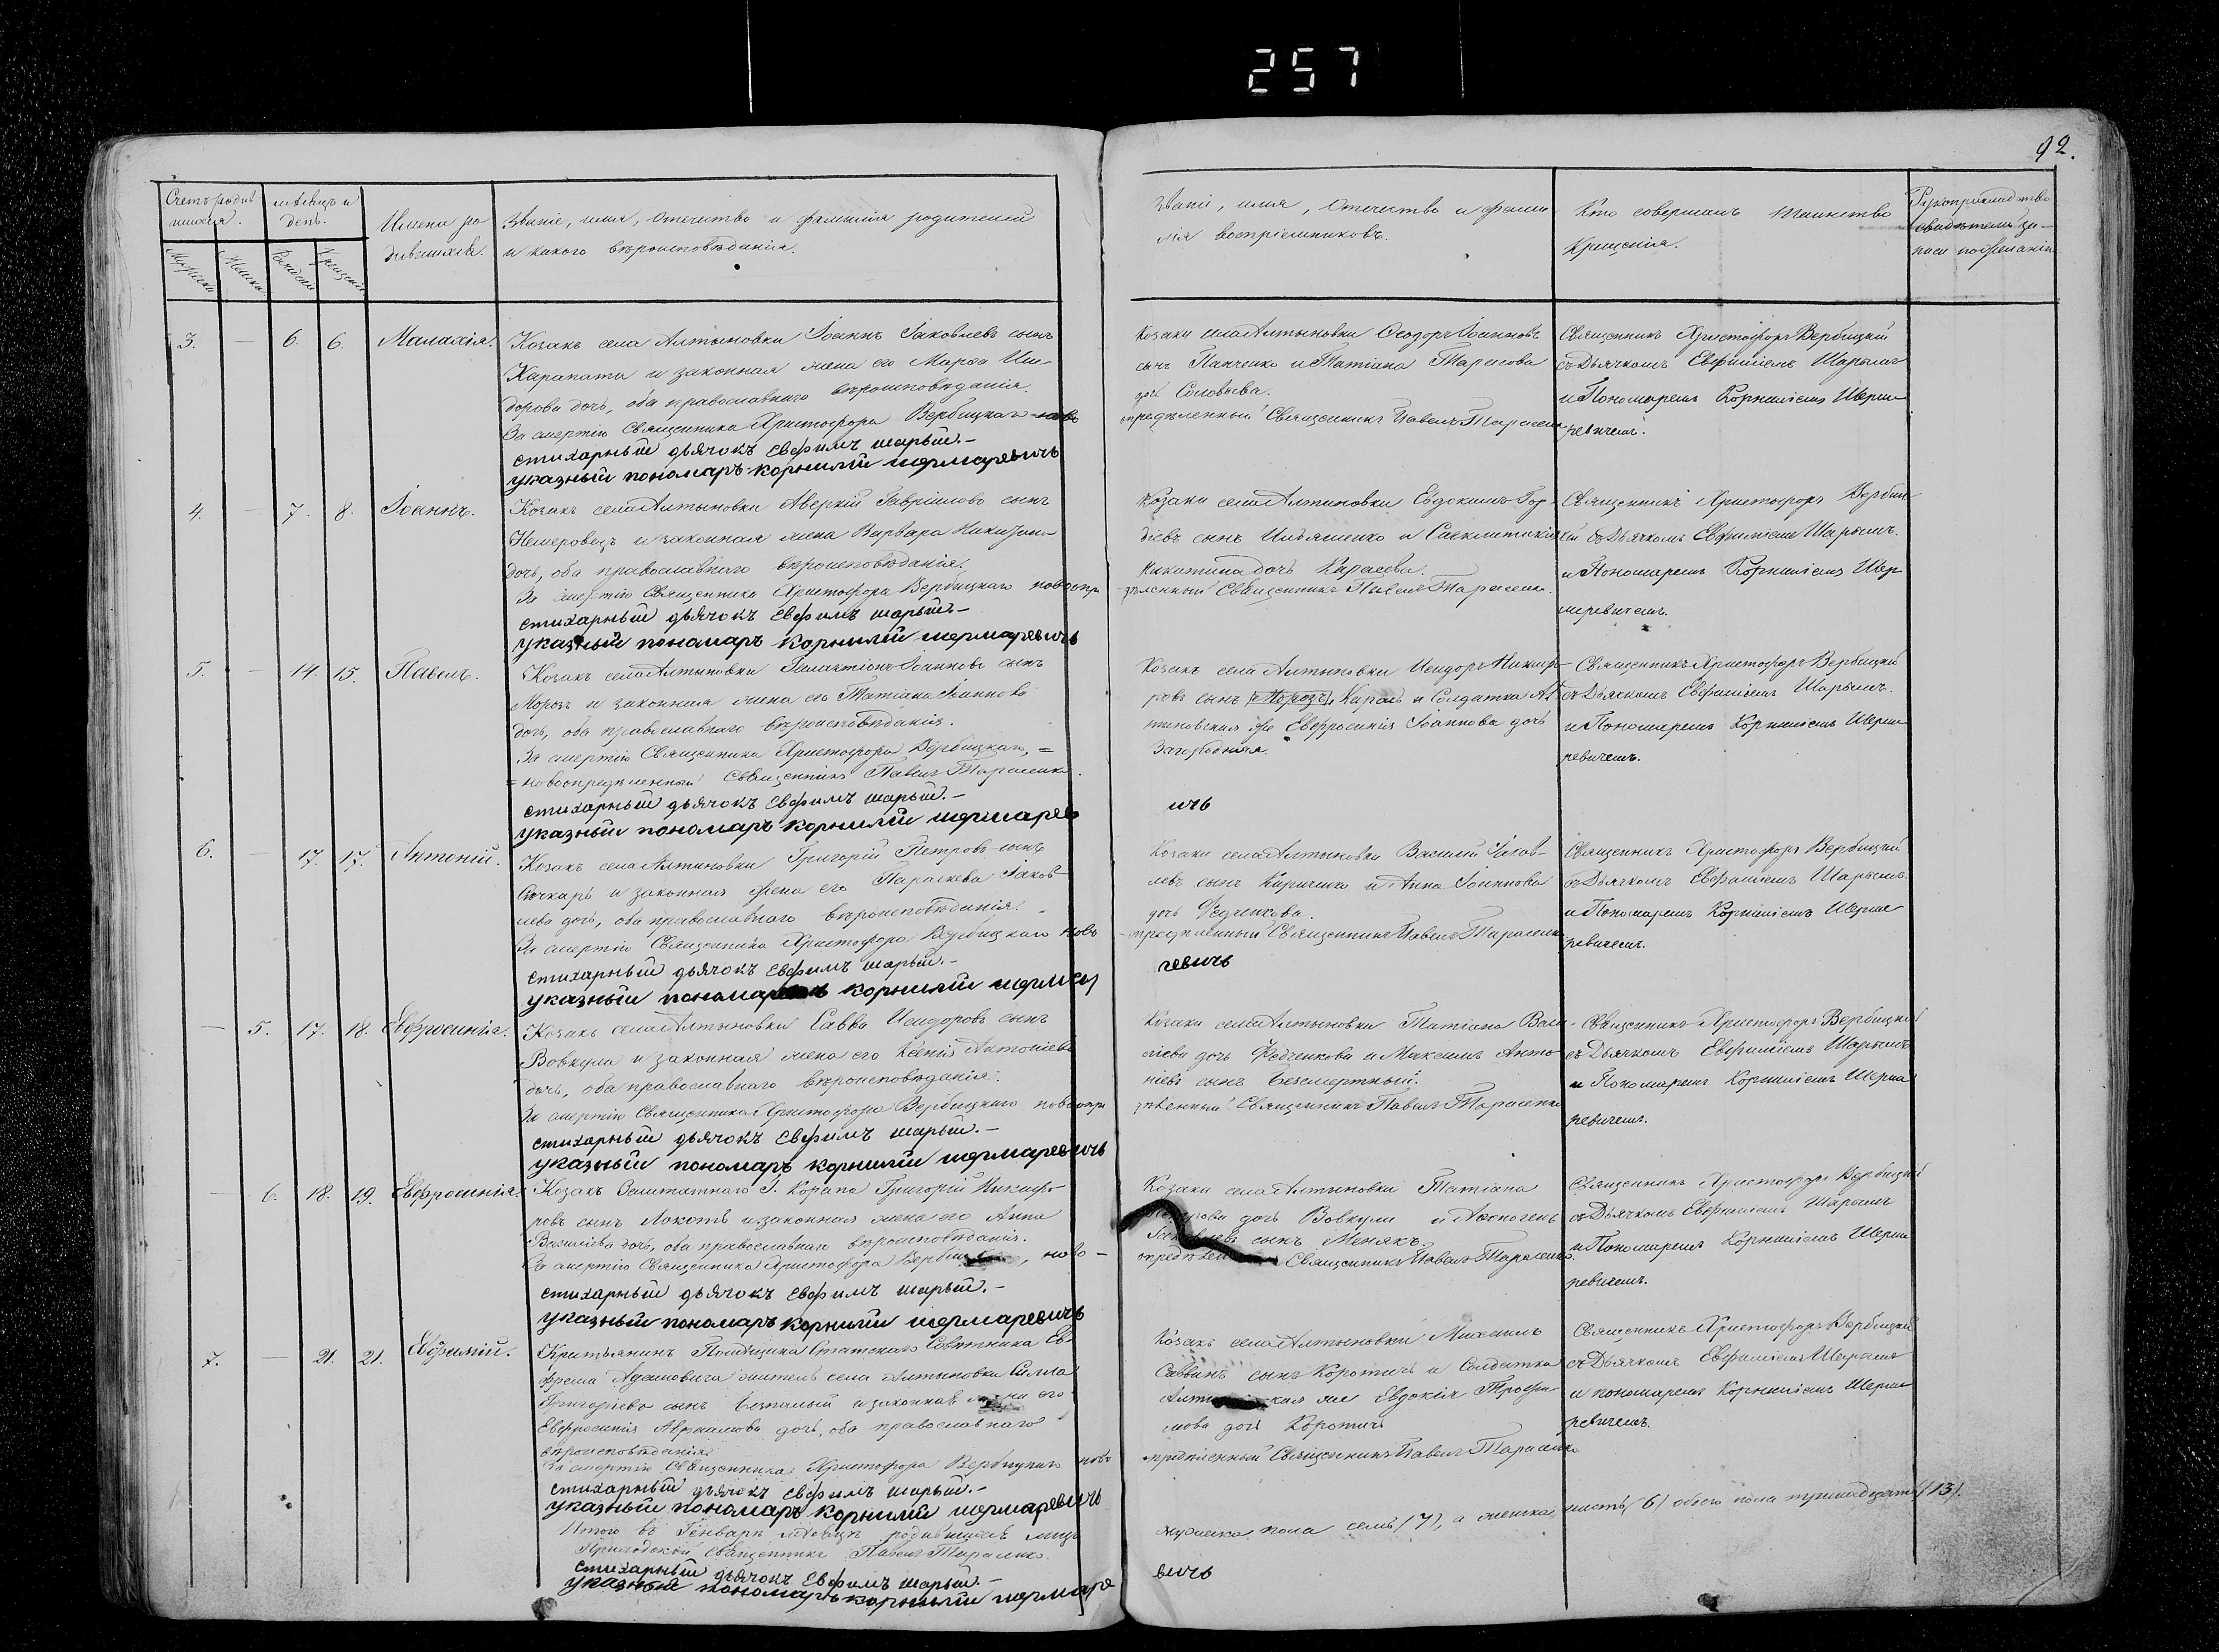 257
92.
Счетъ родив
шихся.
Мѣсяцъ и
день.
Имена ро
дившихся.
Званіе, имя, отечество и фамилія родителей
и какого вѣроисповѣданія.
Званіе, имя, отечество и фами
лія воспріемниковъ.
Кто совершалъ таинство
Крещенія.
Рукоприкладство
свидѣтелей за-
писи по желанію
3. — 6. 6. Малахія.
Козакъ села Алтыновки Іоаннъ Іаковлевъ сынъ
и законная жена его Марѳа Иси-
дорова дочь, оба православнаго вѣроисповѣданія.
За смертію Священника Христофора Вербицкаго ново
стихарный дьячокъ Евфимъ шарый.-
указный пономарь корнилій шермаревичь
Козаки села Алтыновки Ѳеодоръ Іоанновъ
сынъ Панченко и Татіана Тарасова
дочь Соловьева.
опредѣленный Священникъ Павелъ Тарасенко
Священникъ Христофоръ Вербицкій
съ Дьячкомъ Евфиміемъ Шарымъ
и Пономаремъ Корниліемъ Шерма
ревичемъ.
4. — 7. 8. Іоаннъ.
Козакъ села Алтыновки Аверкій Гавріиловъ сынъ
и законная жена Варвара Никитина
дочь, оба православнаго вѣроисповѣданія.
За смертію Священника Христофора Вербицкаго новоопре
стихарный дьячокъ Евфимъ шарый.-
указный пономарь корнилій шермаревичь
Козаки села Алтыновки Евдокимъ Гор
діевъ сынъ Ильяшенко и
Никитина дочь Карасева.
дѣленный Священникъ Павелъ Тарасенко.
Священникъ Христофоръ Вербиц
кій съ Дьячкомъ Евфиміемъ Шарымъ.
и Пономаремъ Корниліемъ Шер
маревичемъ.
5. — 14. 15. Павелъ.
Козакъ села Алтыновки Галактіонъ Іоанновъ сынъ
Морозъ и законная жена его Татіана Іоаннова
дочь, оба православнаго вѣроисповѣданія.
За смертію Священника Христофора Вербицкаго, =
= новоопредѣленный Священникъ Павелъ Тарасенко.
стихарный дьячокъ Евфимъ шарый.-
указный пономарь корнилій шермарев
Козакъ села Алтыновки Исидоръ Никифо-
ровъ сынъ Морозъ Карась и Солдатка Ал
тыновская же Евфросинія Іоаннова дочь
Загородняя.
ичь
Священникъ Христофоръ Вербицкій
съ Дьячкомъ Евфиміемъ Шарымъ.
и Пономаремъ Корниліемъ Шерма
ревичемъ.
6. — 17. 17. Антоній.
Козакъ села Алтыновки Григорій Петровъ сынъ
и законная жена его Параскева Іаков-
лева дочь, оба православнаго вѣроисповѣданія.
За смертію Священника Христофора Вербицкаго ново
стихарный дьячокъ Евфимъ шарый.-
указный пономарь корнилій шерма
Козаки села Алтыновки Василій Іаков-
левъ сынъ Кириченко и Анна Іоаннова
дочь Федченкова.
опредѣленный Священникъ Павелъ Тарасенко
ревичь
Священникъ Христофоръ Вербицкій
съ Дьячкомъ Евфиміемъ Шарымъ.
и Пономаремъ Корниліемъ Шерма
ревичемъ.
— 5. 17. 18. Евфросинія.
Козакъ села Алтыновки Савва Исидоровъ сынъ
Вовкула и законная жена его Ксенія Антоніева
дочь, оба православнаго вѣроисповѣданія.
За смертію Священника Христофора Вербицкаго новоопре
стихарный дьячокъ Евфимъ шарый.-
указный пономарь корнилій шермаревичь
Козаки села Алтыновки Татіана Васи-
ліева дочь Федченкова и Максимъ Анто
ніевъ сынъ Безсмертный.
дѣленный Священникъ Павелъ Тарасенко
Священникъ Христофоръ Вербицкій
съ Дьячкомъ Евфиміемъ Шарымъ
и Пономаремъ Корниліемъ Шерма
ревичемъ.
— 6. 18. 19. Евфросинія
Козакъ Заштатнаго Г. Коропа Григорій Никифо-
ровъ сынъ Локоть и законная жена его Анна
Василіева дочь, оба православнаго вѣроисповѣданія.
За смертію Священника Христофора Верби, ново-
стихарный дьячокъ Евфимъ шарый.-
указный пономарь корнилій шермаревичь
Козаки села Алтыновки Татіана
дочь Вовкули и Аѳиногенъ
сынъ Менякъ.
опредѣлен Священникъ Павелъ Тарасенко.
Священникъ Христофоръ Вербицкій
съ Дьячкомъ Евфиміемъ Шарымъ
и Пономаремъ Корниліемъ Шерма
ревичемъ.
7. — 21. 21. Евфимій.
Крестьянинъ Помѣщика Статскаго Совѣтника Ев-
фрема Адамовича житель села Алтыновки Силла
Григоріевъ сынъ и законная жена его
Евфросинія Авраамова дочь, оба православнаго
вѣроисповѣданія.
За смертію Священника Христофора Вербицкаго ново
стихарный дьячокъ Евфимъ шарый.-
указный пономарь корнилій шермаревичь
Козакъ села Алтыновки Михаилъ
Саввинъ сынъ Коротичь и Солдатка
Алтыновская же Евдокія Трофи
мова дочь Коротичь
опредѣленный Священникъ Павелъ Тарасенко
Священникъ Христофоръ Вербицкій
съ Дьячкомъ Евфиміемъ Шарымъ
и пономаремъ Корниліемъ Шерма
ревичемъ.
Итого въ Генварѣ мѣсяцѣ родившихся лицъ
мужеска пола семь (7), а женска шесть (6) обоего пола тринадцать (13).
Приходской Священникъ Павелъ Тарасенко.
стихарный дьячокъ Евфимъ шарый.-
указный пономарь корнилій шермаре
вичь